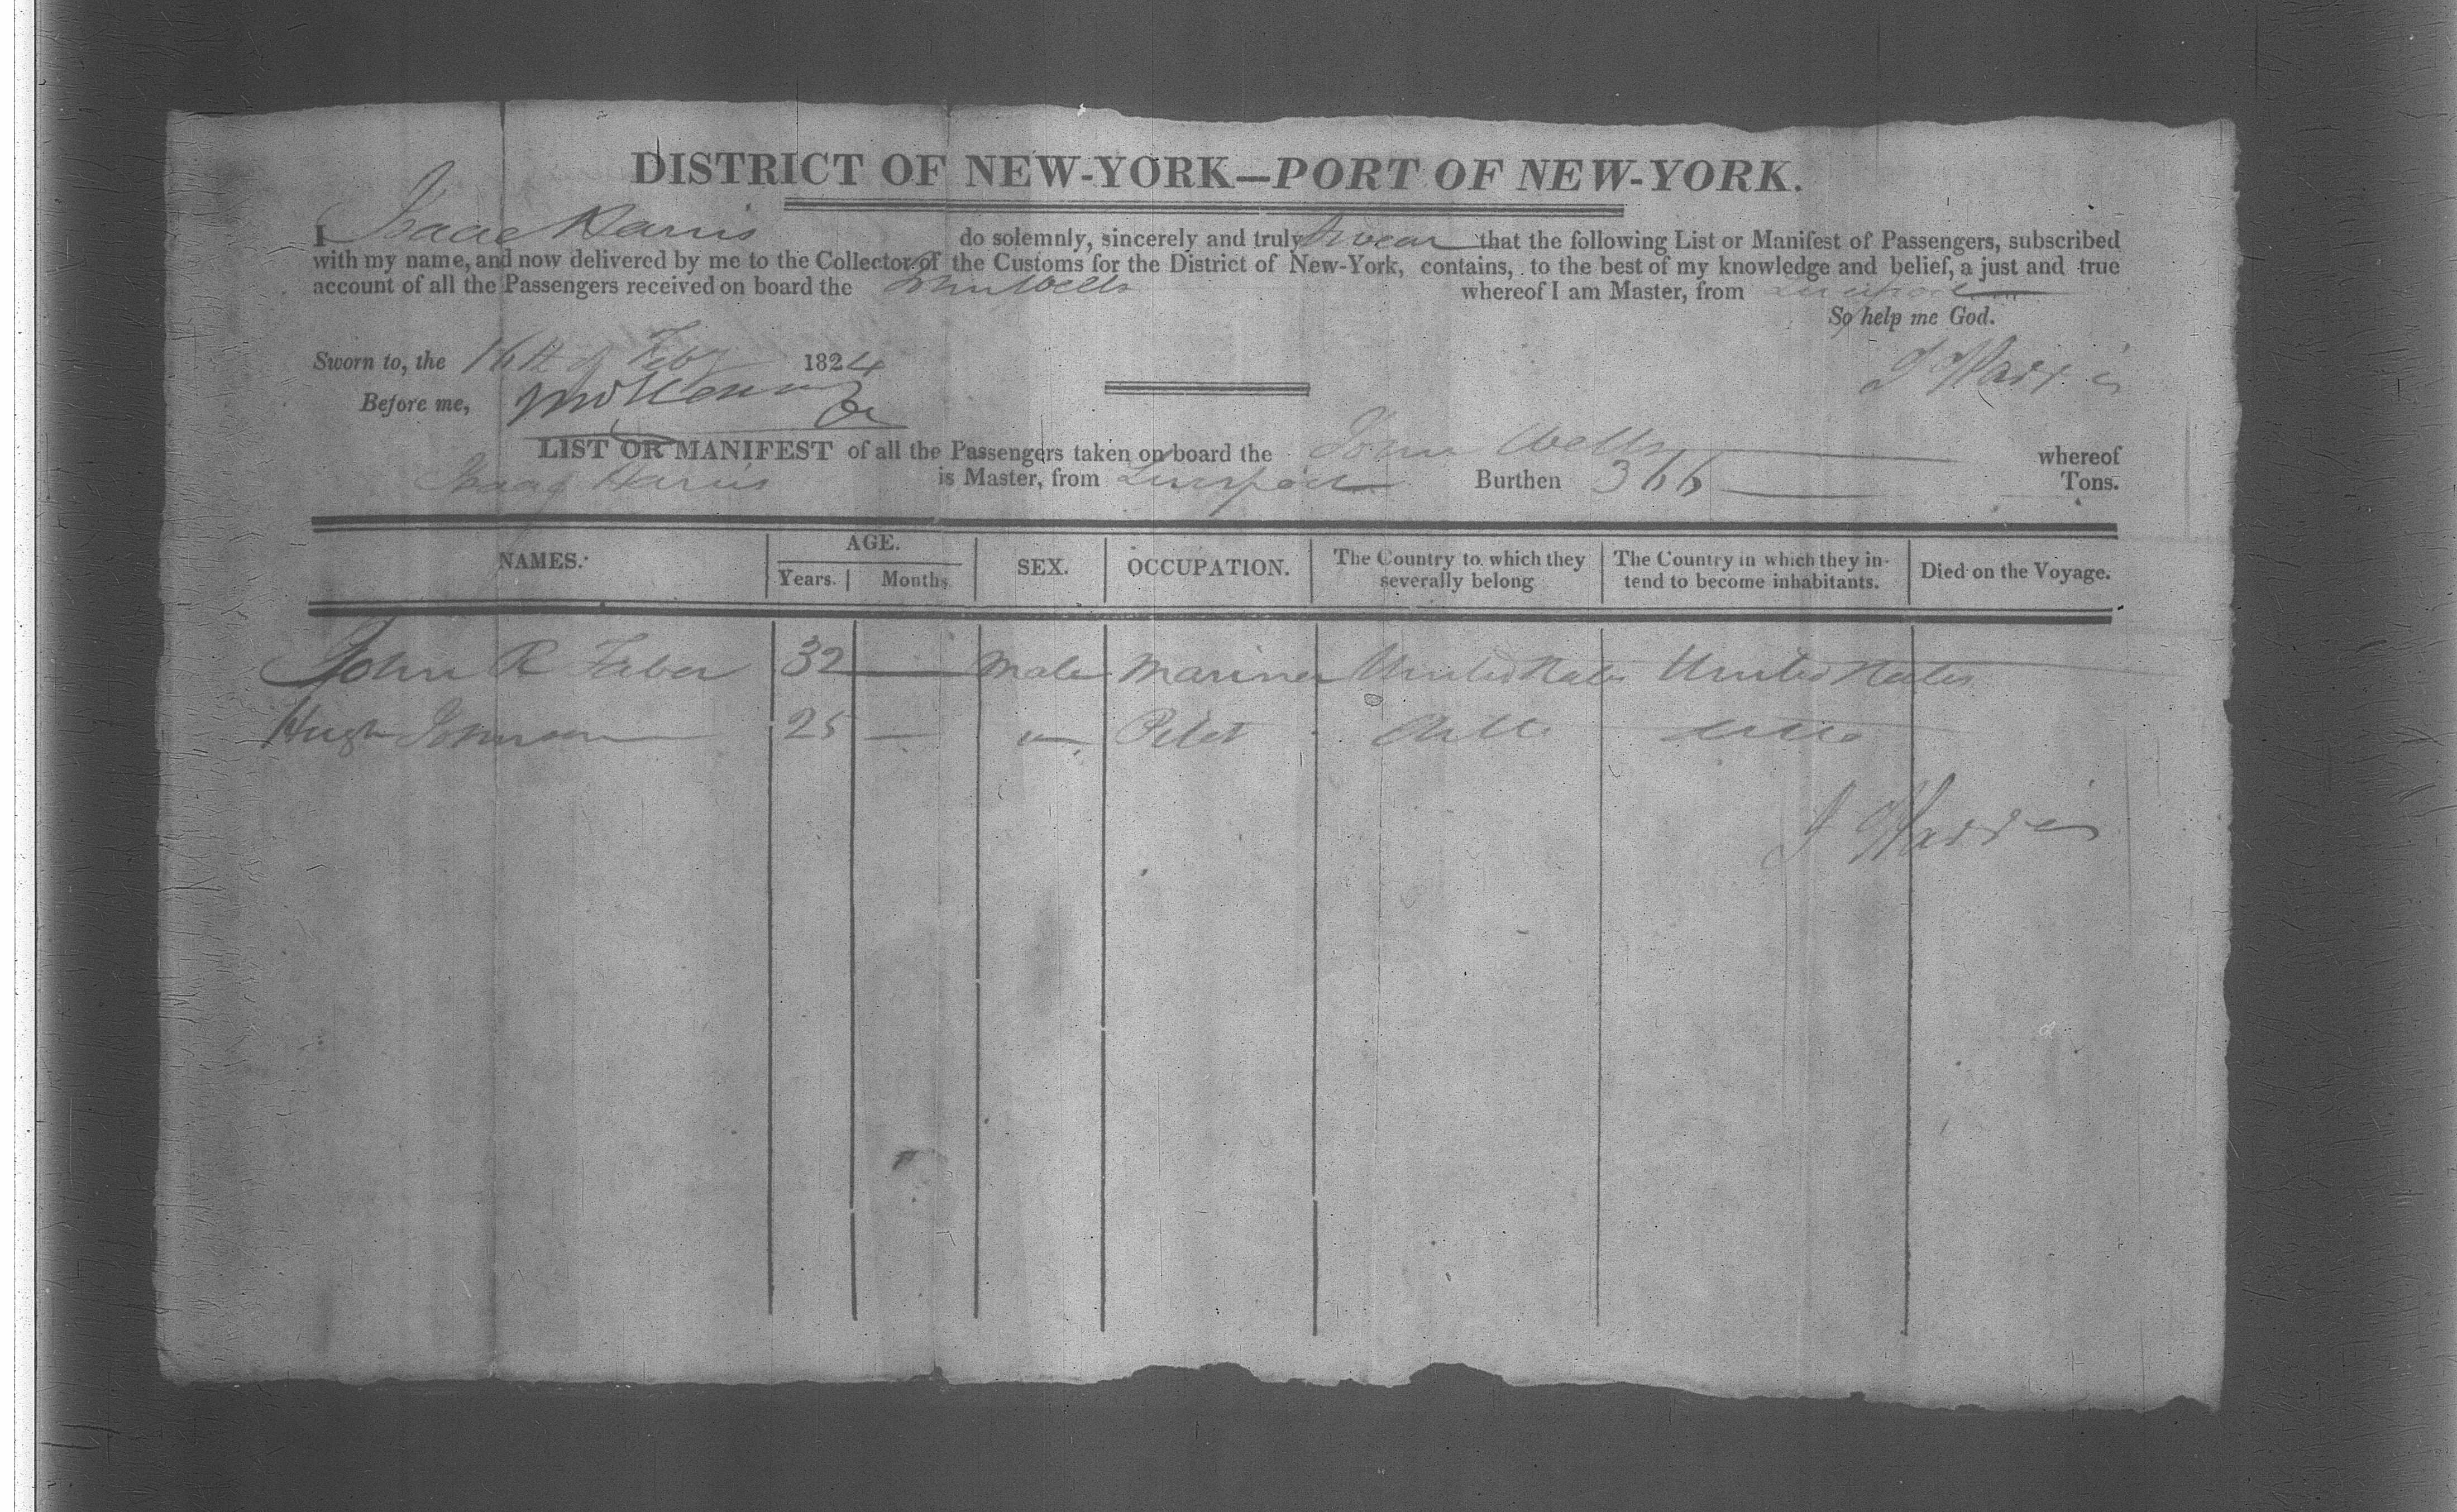 DISTRICT OF NEW-YORK—PORT OF NEW-YORK.
I Isaac Harris do solemnly, sincerely and truly swear that the following List or Manifest of Passengers, subscribed
with my name, and now delivered by me to the Collector of the Customs for the District of New-York, contains, to the best of my knowledge and belief, a just and true
account of all the Passengers received on board the John Wells whereof I am Master, from Liverpool
So help me God.
Sworn to, the 16th of Feby 1824
I Harris
Before me,
LIST OR MANIFEST of all the Passengers taken on board the John Wells whereof
Isaac Harris is Master, from Liverpool Burthen 366 Tons.
NAMES. AGE. Years. Months. SEX. OCCUPATION. The Country to which they severally belong The Country in which they intend to become inhabitants. Died on the Voyage.
John R Faber 32 — Male Mariner United States United States
Hugh Johnson 25 — " Pilot Ditto Ditto
I Harris